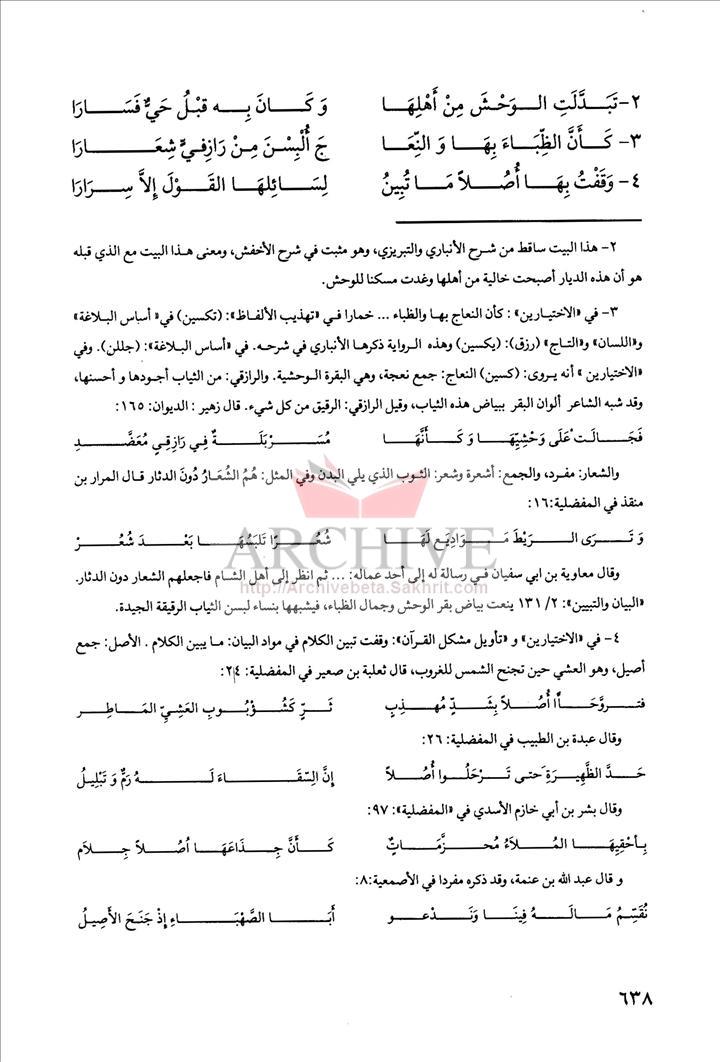 ٢- تَبَدَّلَتِ الـوَحْشَ مِنْ أَهْلِهَـا وَ كَـانَ بِـه قبْلُ حَيٌّ فَسَـارَا
٣- كَـأَنَّ الظِّبَـاءَ بِهَـا وَ النِّعَـا جَ أُلْبِسْنَ مِنْ رَازِقيٍّ شِعَـارَا
٤- وَقَفْتُ بِهَـا أُصُـلاً مَـا تُبِينُ لِسَـائِلهَـا القَـوْلَ إِلاَّ سِـرَارَا
٢- هذا البيت ساقط من شرح الأنباري والتبريزي، وهو مثبت في شرح الأخفش، ومعنى هـذا البيت مع الذي قبله
هو أن هذه الديار أصبحت خالية من أهلها وغدت مسكنا للوحش.
٣- في «الاختيارين» : كأن النعاج بهـا والظباء ... خمارا فـي «تهذيب الألفـاظ»: (تكسين) في« أساس البـلاغة»
و«اللسان» و«التـاج» (رزق): (يكسين) وهذه الرواية ذكرهـا الأنباري في شرحـه. في «أساس البلاغة»: (جللن). وفي
«الاختيارين » أنه يـروى: (كسين) النعاج: جمع نعجة، وهي البقرة الوحشية. والرازقي: من الثياب أجودها و أحسنها،
وقد شبه الشاعر ألوان البقر ببياض هذه الثياب، وقيل الرازقي: الرقيق من كل شيء. قال زهير : الديوان: ١٦٥:
فَجَـالَتْ عَلَى وَحْشِيِّهَـا وَ كَـأَنَّهَـا مُسَـرْبَلَـةٌ فِـي رَازِقِي مُعَضَّـدِ
والشعار: مفـرد، والجمع: أشعرة وشعر: الثـوب الذي يلي البدن وفي المثل: هُمُ الشُّعَـارُ دُونَ الدثار قـال المرار بن
منقذ في المفضلية:١٦:
وَ تَـرَى الـرَيْطَ مَـوَادِيـعَ لَهَـا شُعُـرًا تَلبَسُهَـا بَعْـدَ شُعُـرْ
ARCHIVE
http://Archivebeta.Sakhrit.com
وقال معاوية بن ابي سفيان فـي رسالة له إلى أحد عماله: ... ثم انظر إلى أهل الشـام فاجعلهم الشعار دون الدثار.
«البيان والتبيين»: ٢/ ١٣١ ينعت بياض بقر الوحش وجمال الظباء، فيشبهها بنساء لبسن الثياب الرقيقة الجيدة.
٤- في «الاختيارين» و «تأويل مشكل القرآن»: وقفت تبين الكلام في مواد البيان: مـا يبين الكلام . الأصل: جمع
أصيل، وهو العشي حين تجنح الشمس للغروب، قال ثعلبة بن صعير في المفضلية: ٢٤:
فتـروَّحَـا أُصُـلاً بِشَـدٍّ مُهـذِبٍ ثَـرٍّ كَشُـؤْبُـوبِ العَشِـيِّ المَـاطِـر
وقال عبدة بن الطبيب في المفضلية: ٢٦:
حَـدَّ الظَّهِيـرَةِ حَتـى تَـرْحَلُـوا أُصُـلاً إِنَّ السِّقَـاءَ لَـهُ رَمٌّ وَ تَبْلِيلُ
وقال بشر بن أبي خازم الأسدي في «المفضلية»: ٩٧:
بِـأَحْقِيهَـا المُـلاَءُ مُحـزَّمَـاتٌ كَـأَنَّ جِـذَاعَهَـا أصُـلاً جِـلاَم
و قال عبد الله بن عنمة، وقد ذكره مفردا في الأصمعية:٨:
نُقَسِّمُ مَـالَـهُ فِينَـا وَنَـدْعـو أَبَـا الصَّهْبَـاءِ إِذْ جَنَحَ الأَصِيلُ
٦٣٨